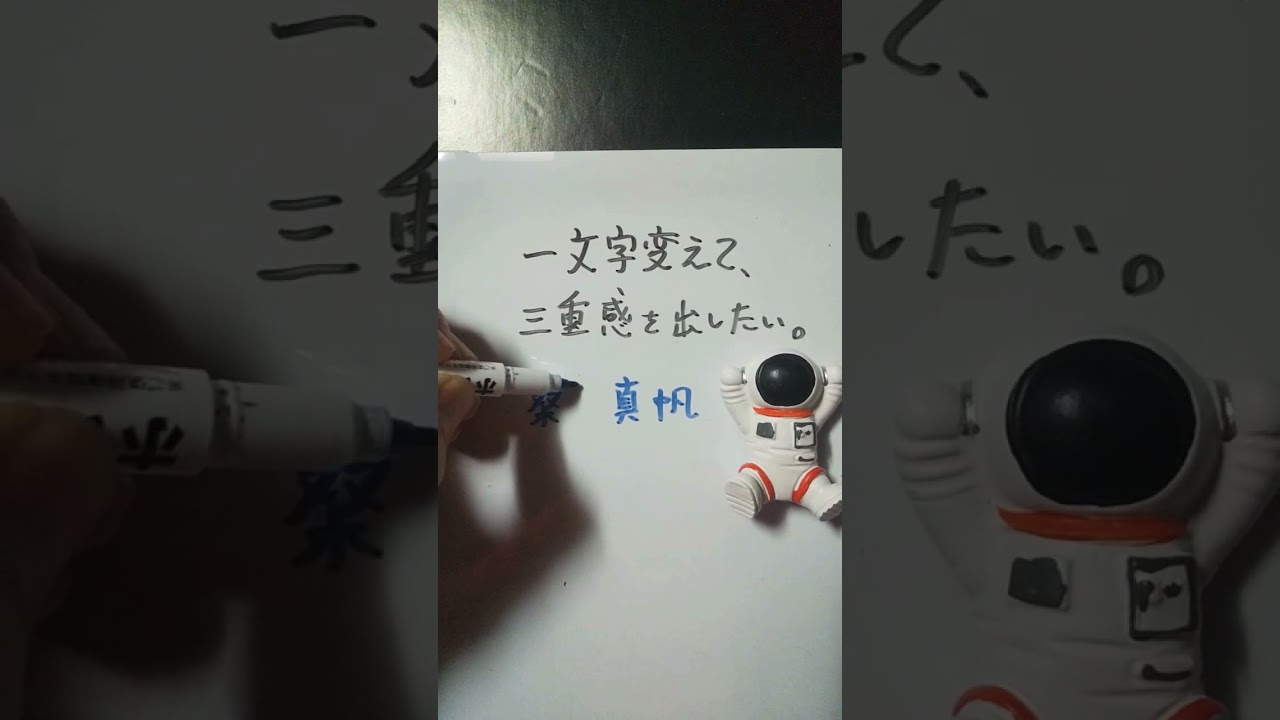 一文字変えて、
三重感を出したい。
桑 真帆
ホ